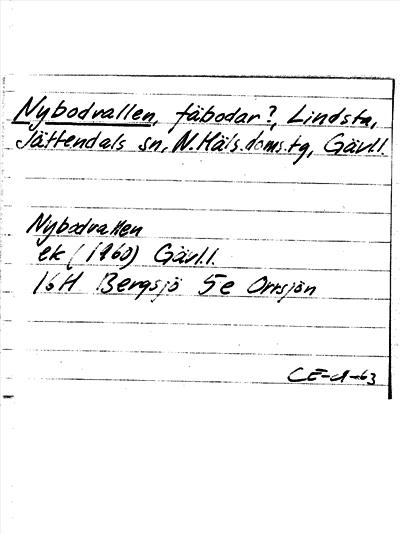 Nybodvallen, fäbodar?, Lindsta,
Jättendals sn, N. Häls. doms.tg, Gävl.l.
Nybodvallen
ek (1960) Gävl.l.
16H Bergsjö 5e Orrsjön